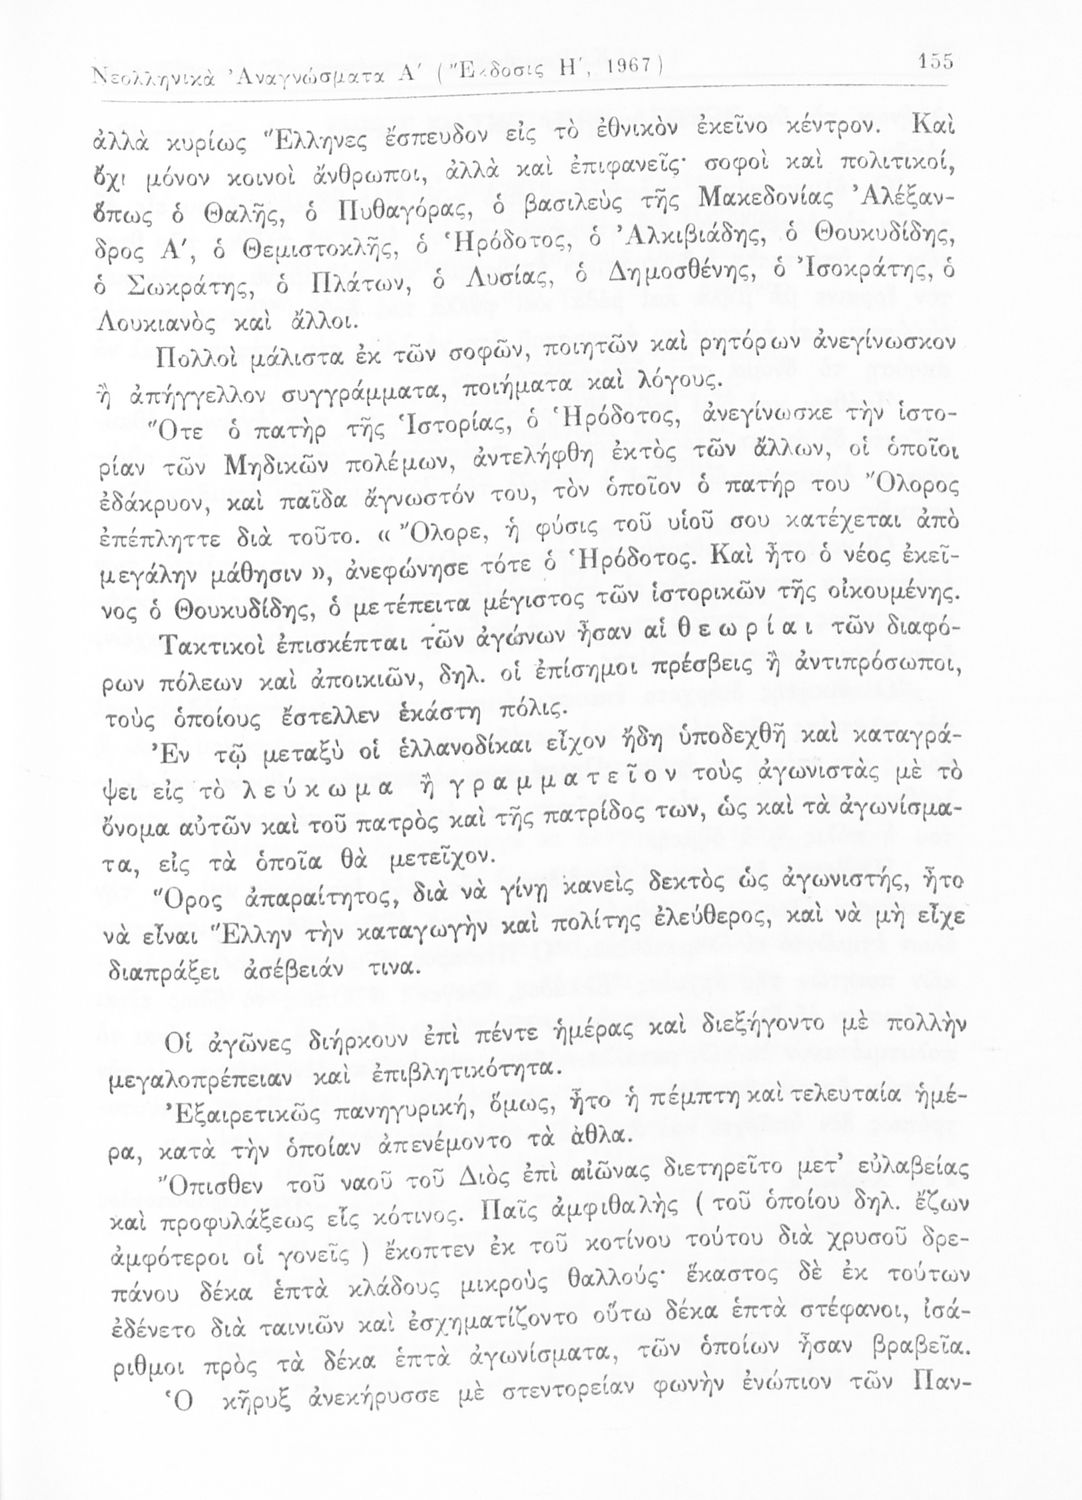 Νεολληνικὰ Ἀναγνώσματα Α΄ ( Ἔκδοσις Η΄, 1967 )
155
ἀλλὰ κυρίως Ἕλληνες ἔσπευδον εἰς τὸ ἐθνικὸν ἐκεῖνο κέντρον. Καὶ
ὄχι μόνον κοινοὶ ἄνθρωποι, ἀλλὰ καὶ ἐπιφανεῖς· σοφοὶ καὶ πολιτικοί,
ὅπως ὁ Θαλῆς, ὁ Πυθαγόρας, ὁ βασιλεὺς τῆς Μακεδονίας Ἀλέξαν-
δρος Α΄, ὁ Θεμιστοκλῆς, ὁ Ἡρόδοτος, ὁ Ἀλκιβιάδης, ὁ Θουκυδίδης,
ὁ Σωκράτης, ὁ Πλάτων, ὁ Λυσίας, ὁ Δημοσθένης, ὁ Ἰσοκράτης, ὁ
Λουκιανὸς καὶ ἄλλοι.
Πολλοὶ μάλιστα ἐκ τῶν σοφῶν, ποιητῶν καὶ ρητόρων ἀνεγίνωσκον
ἢ ἀπήγγελλον συγγράμματα, ποιήματα καὶ λόγους.
Ὅτε ὁ πατὴρ τῆς Ἱστορίας, ὁ Ἡρόδοτος, ἀνεγίνωσκε τὴν ἱστο-
ρίαν τῶν Μηδικῶν πολέμων, ἀντελήφθη ἐκτὸς τῶν ἄλλων, οἱ ὁποῖοι
ἐδάκρυον, καὶ παῖδα ἄγνωστόν του, τὸν ὁποῖον ὁ πατήρ του Ὄλορος
ἐπέπληττε διὰ τοῦτο. « Ὄλορε, ἡ φύσις τοῦ υἱοῦ σου κατέχεται ἀπὸ
μεγάλην μάθησιν », ἀνεφώνησε τότε ὁ Ἡρόδοτος. Καὶ ἦτο ὁ νέος ἐκεῖ-
νος ὁ Θουκυδίδης, ὁ μετέπειτα μέγιστος τῶν ἱστορικῶν τῆς οἰκουμένης.
Τακτικοὶ ἐπισκέπται τῶν ἀγώνων ἦσαν αἱ θ ε ω ρ ί α ι τῶν διαφό-
ρων πόλεων καὶ ἀποικιῶν, δηλ. οἱ ἐπίσημοι πρέσβεις ἢ ἀντιπρόσωποι,
τοὺς ὁποίους ἔστελλεν ἑκάστη πόλις.
Ἐν τῷ μεταξὺ οἱ ἑλλανοδίκαι εἶχον ἤδη ὑποδεχθῆ καὶ καταγρά-
ψει εἰς τὸ λ ε ύ κ ω μ α ἢ γ ρ α μ μ α τ ε ῖ ο ν τοὺς ἀγωνιστὰς μὲ τὸ
ὄνομα αὐτῶν καὶ τοῦ πατρὸς καὶ τῆς πατρίδος των, ὡς καὶ τὰ ἀγωνίσμα-
τα, εἰς τὰ ὁποῖα θὰ μετεῖχον.
Ὅρος ἀπαραίτητος, διὰ νὰ γίνῃ κανεὶς δεκτὸς ὡς ἀγωνιστής, ἦτο
νὰ εἶναι Ἕλλην τὴν καταγωγὴν καὶ πολίτης ἐλεύθερος, καὶ νὰ μὴ εἶχε
διαπράξει ἀσέβειάν τινα.
Οἱ ἀγῶνες διήρκουν ἐπὶ πέντε ἡμέρας καὶ διεξήγοντο μὲ πολλὴν
μεγαλοπρέπειαν καὶ ἐπιβλητικότητα.
Ἐξαιρετικῶς πανηγυρική, ὅμως, ἦτο ἡ πέμπτη καὶ τελευταία ἡμέ-
ρα, κατὰ τὴν ὁποίαν ἀπενέμοντο τὰ ἆθλα.
Ὄπισθεν τοῦ ναοῦ τοῦ Διὸς ἐπὶ αἰῶνας διετηρεῖτο μετ' εὐλαβείας
καὶ προφυλάξεως εἷς κότινος. Παῖς ἀμφιθαλὴς ( τοῦ ὁποίου δηλ. ἔζων
ἀμφότεροι οἱ γονεῖς ) ἔκοπτεν ἐκ τοῦ κοτίνου τούτου διὰ χρυσοῦ δρε-
πάνου δέκα ἑπτὰ κλάδους μικροὺς θαλλούς· ἕκαστος δὲ ἐκ τούτων
ἐδένετο διὰ ταινιῶν καὶ ἐσχηματίζοντο οὕτω δέκα ἑπτὰ στέφανοι, ἰσά-
ριθμοι πρὸς τὰ δέκα ἑπτὰ ἀγωνίσματα, τῶν ὁποίων ἦσαν βραβεῖα.
Ὁ κῆρυξ ἀνεκήρυσσε μὲ στεντορείαν φωνὴν ἐνώπιον τῶν Παν-